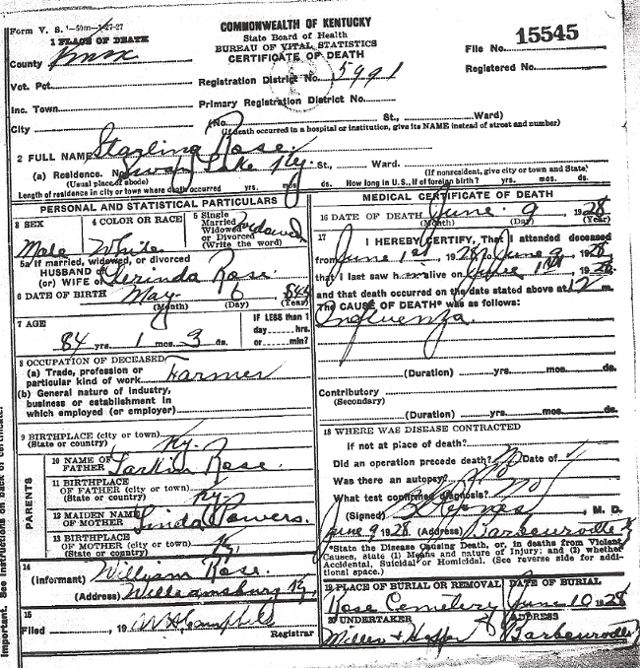 Form V. S. 1-50m-1-27-27
COMMONWEALTH OF KENTUCKY
State Board of Health
BUREAU OF VITAL STATISTICS
CERTIFICATE OF DEATH
File No. 15545
Registered No.
1 PLACE OF DEATH
County Knox
Vot. Pct. Registration District No. 5991
Inc. Town Primary Registration District No.
City (No. St., Ward)
(If death occurred in a hospital or institution, give its NAME instead of street and number)
2 FULL NAME Starling Rose.
(a) Residence. No. Swan Lake Ky. St., Ward.
(Usual place of abode) (If nonresident, give city or town and State)
Length of residence in city or town where death occurred yrs. mos. ds. How long in U.S., If of foreign birth? yrs. mos. ds.
PERSONAL AND STATISTICAL PARTICULARS
3 SEX 4 COLOR OR RACE 5 Single Married Widowed or Divorced (Write the word)
Male White Widowed
5a If married, widowed, or divorced
HUSBAND of
(or) WIFE of Clerinda Rose.
6 DATE OF BIRTH May 6 1844
(Month) (Day) (Year)
7 AGE IF LESS than 1
84 yrs. 1 mos. 3 ds. day hrs. or min?
8 OCCUPATION OF DECEASED
(a) Trade, profession or
particular kind of work Farmer
(b) General nature of industry,
business or establishment in
which employed (or employer)
9 BIRTHPLACE (city or town) Ky.
(State or country)
PARENTS
10 NAME OF FATHER Larkin Rose.
11 BIRTHPLACE OF FATHER (city or town) Ky
(State or country)
12 MAIDEN NAME OF MOTHER Linda Powers.
13 BIRTHPLACE OF MOTHER (city or town) Ky
(State or country)
14
(Informant) William Rose.
(Address) Williamsburg Ky.
15
Filed , 19 Registrar
MEDICAL CERTIFICATE OF DEATH
16 DATE OF DEATH June 9 1928
(Month) (Day)
17 I HEREBY CERTIFY, That I attended deceased
from June 1st, 1928, to June 9, 1928
that I last saw h alive on June, 1928
and that death occurred on the date stated above at 12 m.
The CAUSE OF DEATH* was as follows:
Influenza
(Duration) yrs. mos. ds.
Contributory
(Secondary)
(Duration) yrs. mos. ds.
18 WHERE WAS DISEASE CONTRACTED
if not at place of death?
Did an operation precede death? No Date of
Was there an autopsy? No
What test confirmed diagnosis? No
(Signed) , M. D.
June 9 1928 (Address) Barbourville Ky
*State the Disease Causing Death, or, in deaths from Violent
Causes, state (1) Means and nature of Injury; and (2) whether
Accidental, Suicidal or Homicidal. (See reverse side for addi-
tional space.)
19 PLACE OF BURIAL OR REMOVAL DATE OF BURIAL
Rose Cemetery June 10 1928
20 UNDERTAKER
Barbourville
Important. See instructions on back of certificate.